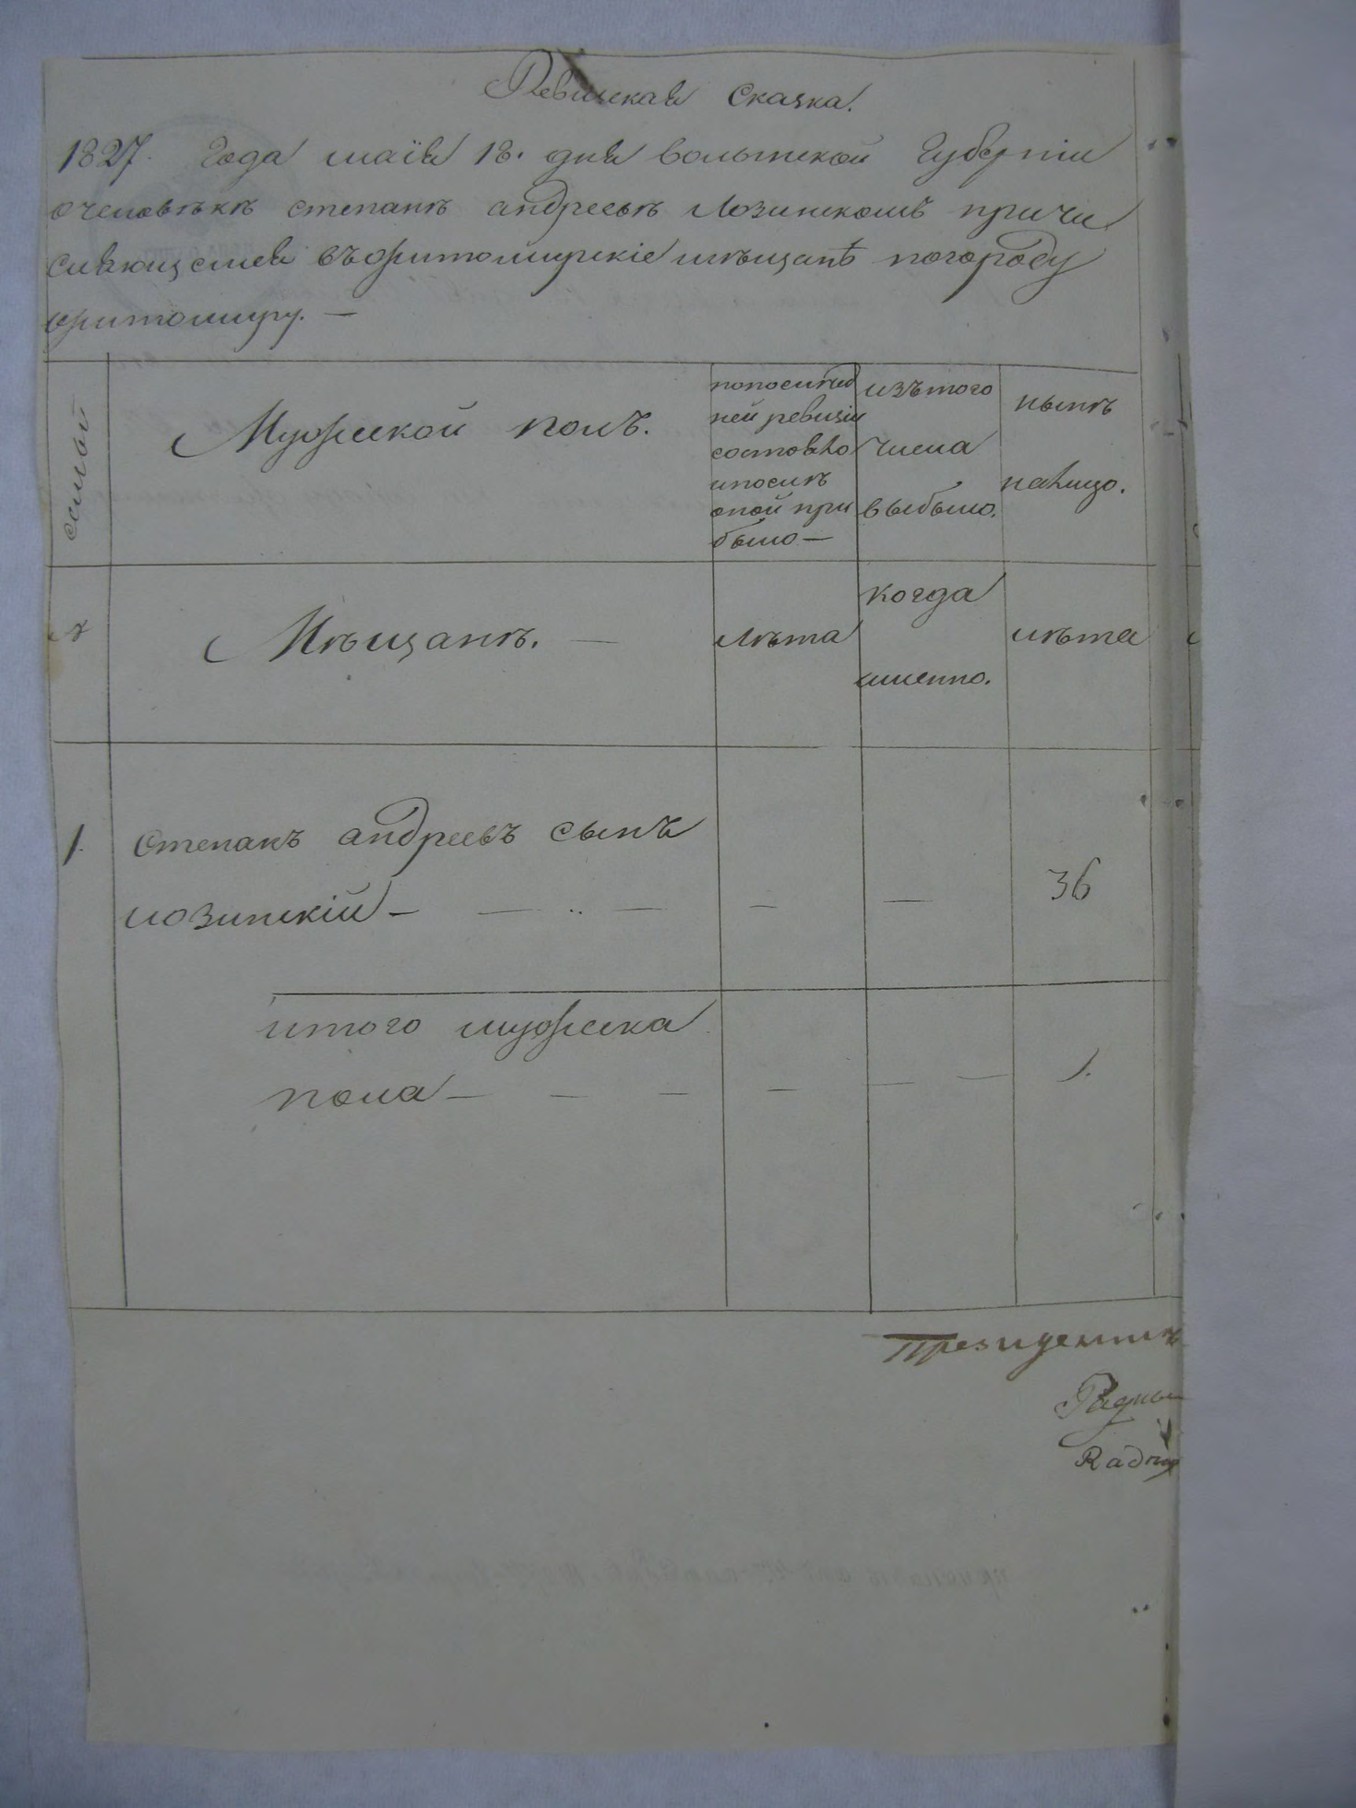 Ревижская Сказка.
1827. Года маія 18. дня волынской Губерніи
очеловѣкѣ степанѣ андреевѣ Лозинскомъ причи
сляющемся въжитомирскіе мѣщанѣ погороду
житомиру. —
семей
Мужеской полъ.
попослѣд
ней ревизіи
состояло
ипослѣ
оной при
было —
изътого
числа
выбыло.
нынѣ
налицо.
Мѣщанѣ. —
лѣта
когда
именно.
лѣта
1. Степанъ андреевъ сынъ
лозинскій — — — — — 36
итого мужеска
пола — — — — — — 1.
Президентъ